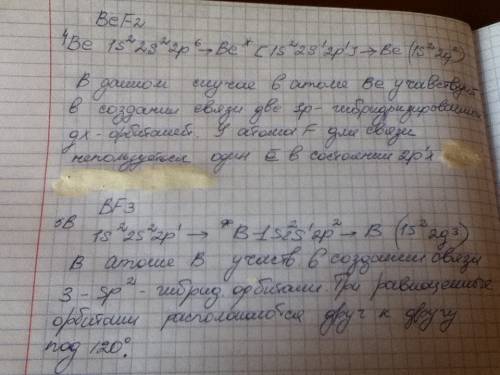 BeF2
4Be 1s² 2s² 2p⁶ → Be* (1s² 2s¹ 2p¹) → Be (1s² 2g²)
В данном случае в атоме Be учавствуют
в создании связи две sp-гибридизированных
gx-орбиталей. У атома F для связи
используется один E в состоянии 2p¹x
BF3
5B
1s² 2s² 2p¹ → *B-1s² 2s¹ 2p² → B (1s² 2g³)
В атоме B участв в создании связи
3-sp²-гибрид. орбитами. Три равноценные
орбитами располагаются друг к другу
под 120°.